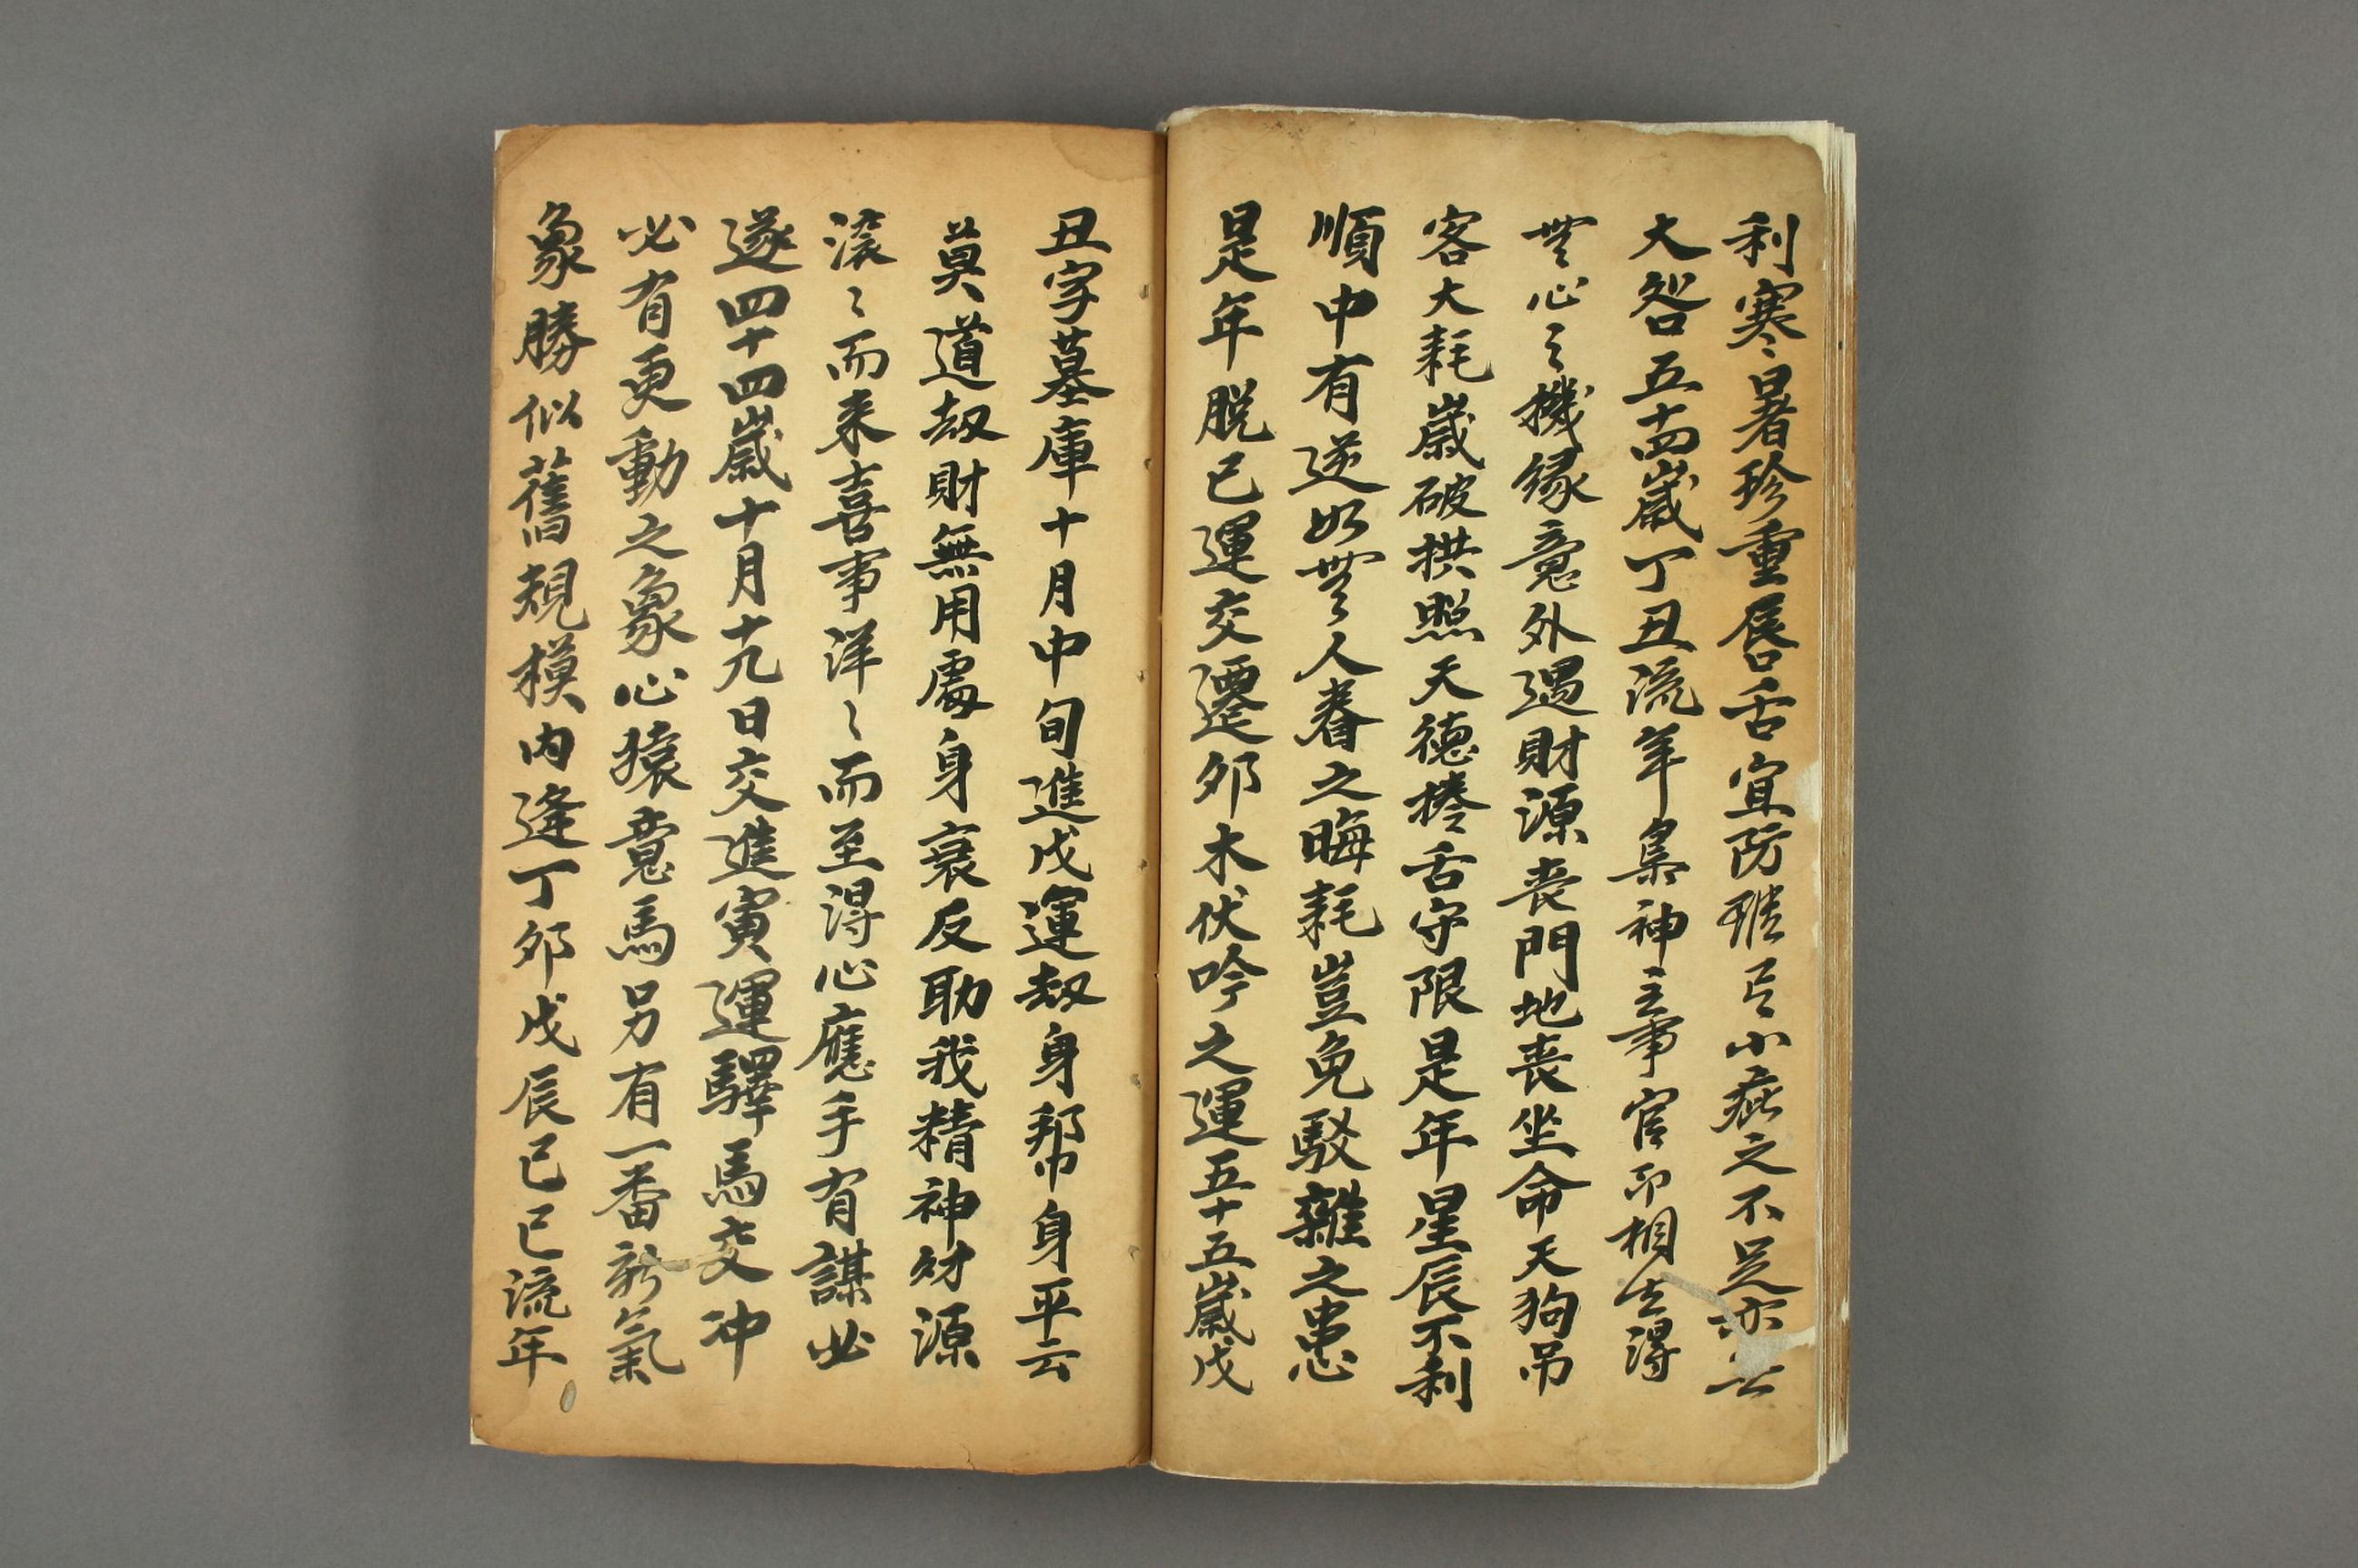 利寒暑珍重唇舌宜防瑣言小疵之不足亦無
大咎五十四歲丁丑流年梟神主事官印相生得
無心之機緣意外遇財源喪門地喪坐命天狗吊
客大耗歲破拱照天德捲舌守限是年星辰不利
順中有逆如無人眷之晦耗豈免駁雜之患
是年脱已運交遷夘木伏吟之運五十五歲戊
丑字墓庫十月中旬進戊運劫身幇身平云
莫道劫財無用處身衰反助我精神財源
滚〻而来喜事洋〻而至得心應手有謀必
遂四十四歲十月十九日交進寅運驛馬交冲
必有更動之象心猿意馬另有一番新氣
象勝似舊規模内逢丁夘戊辰已巳流年